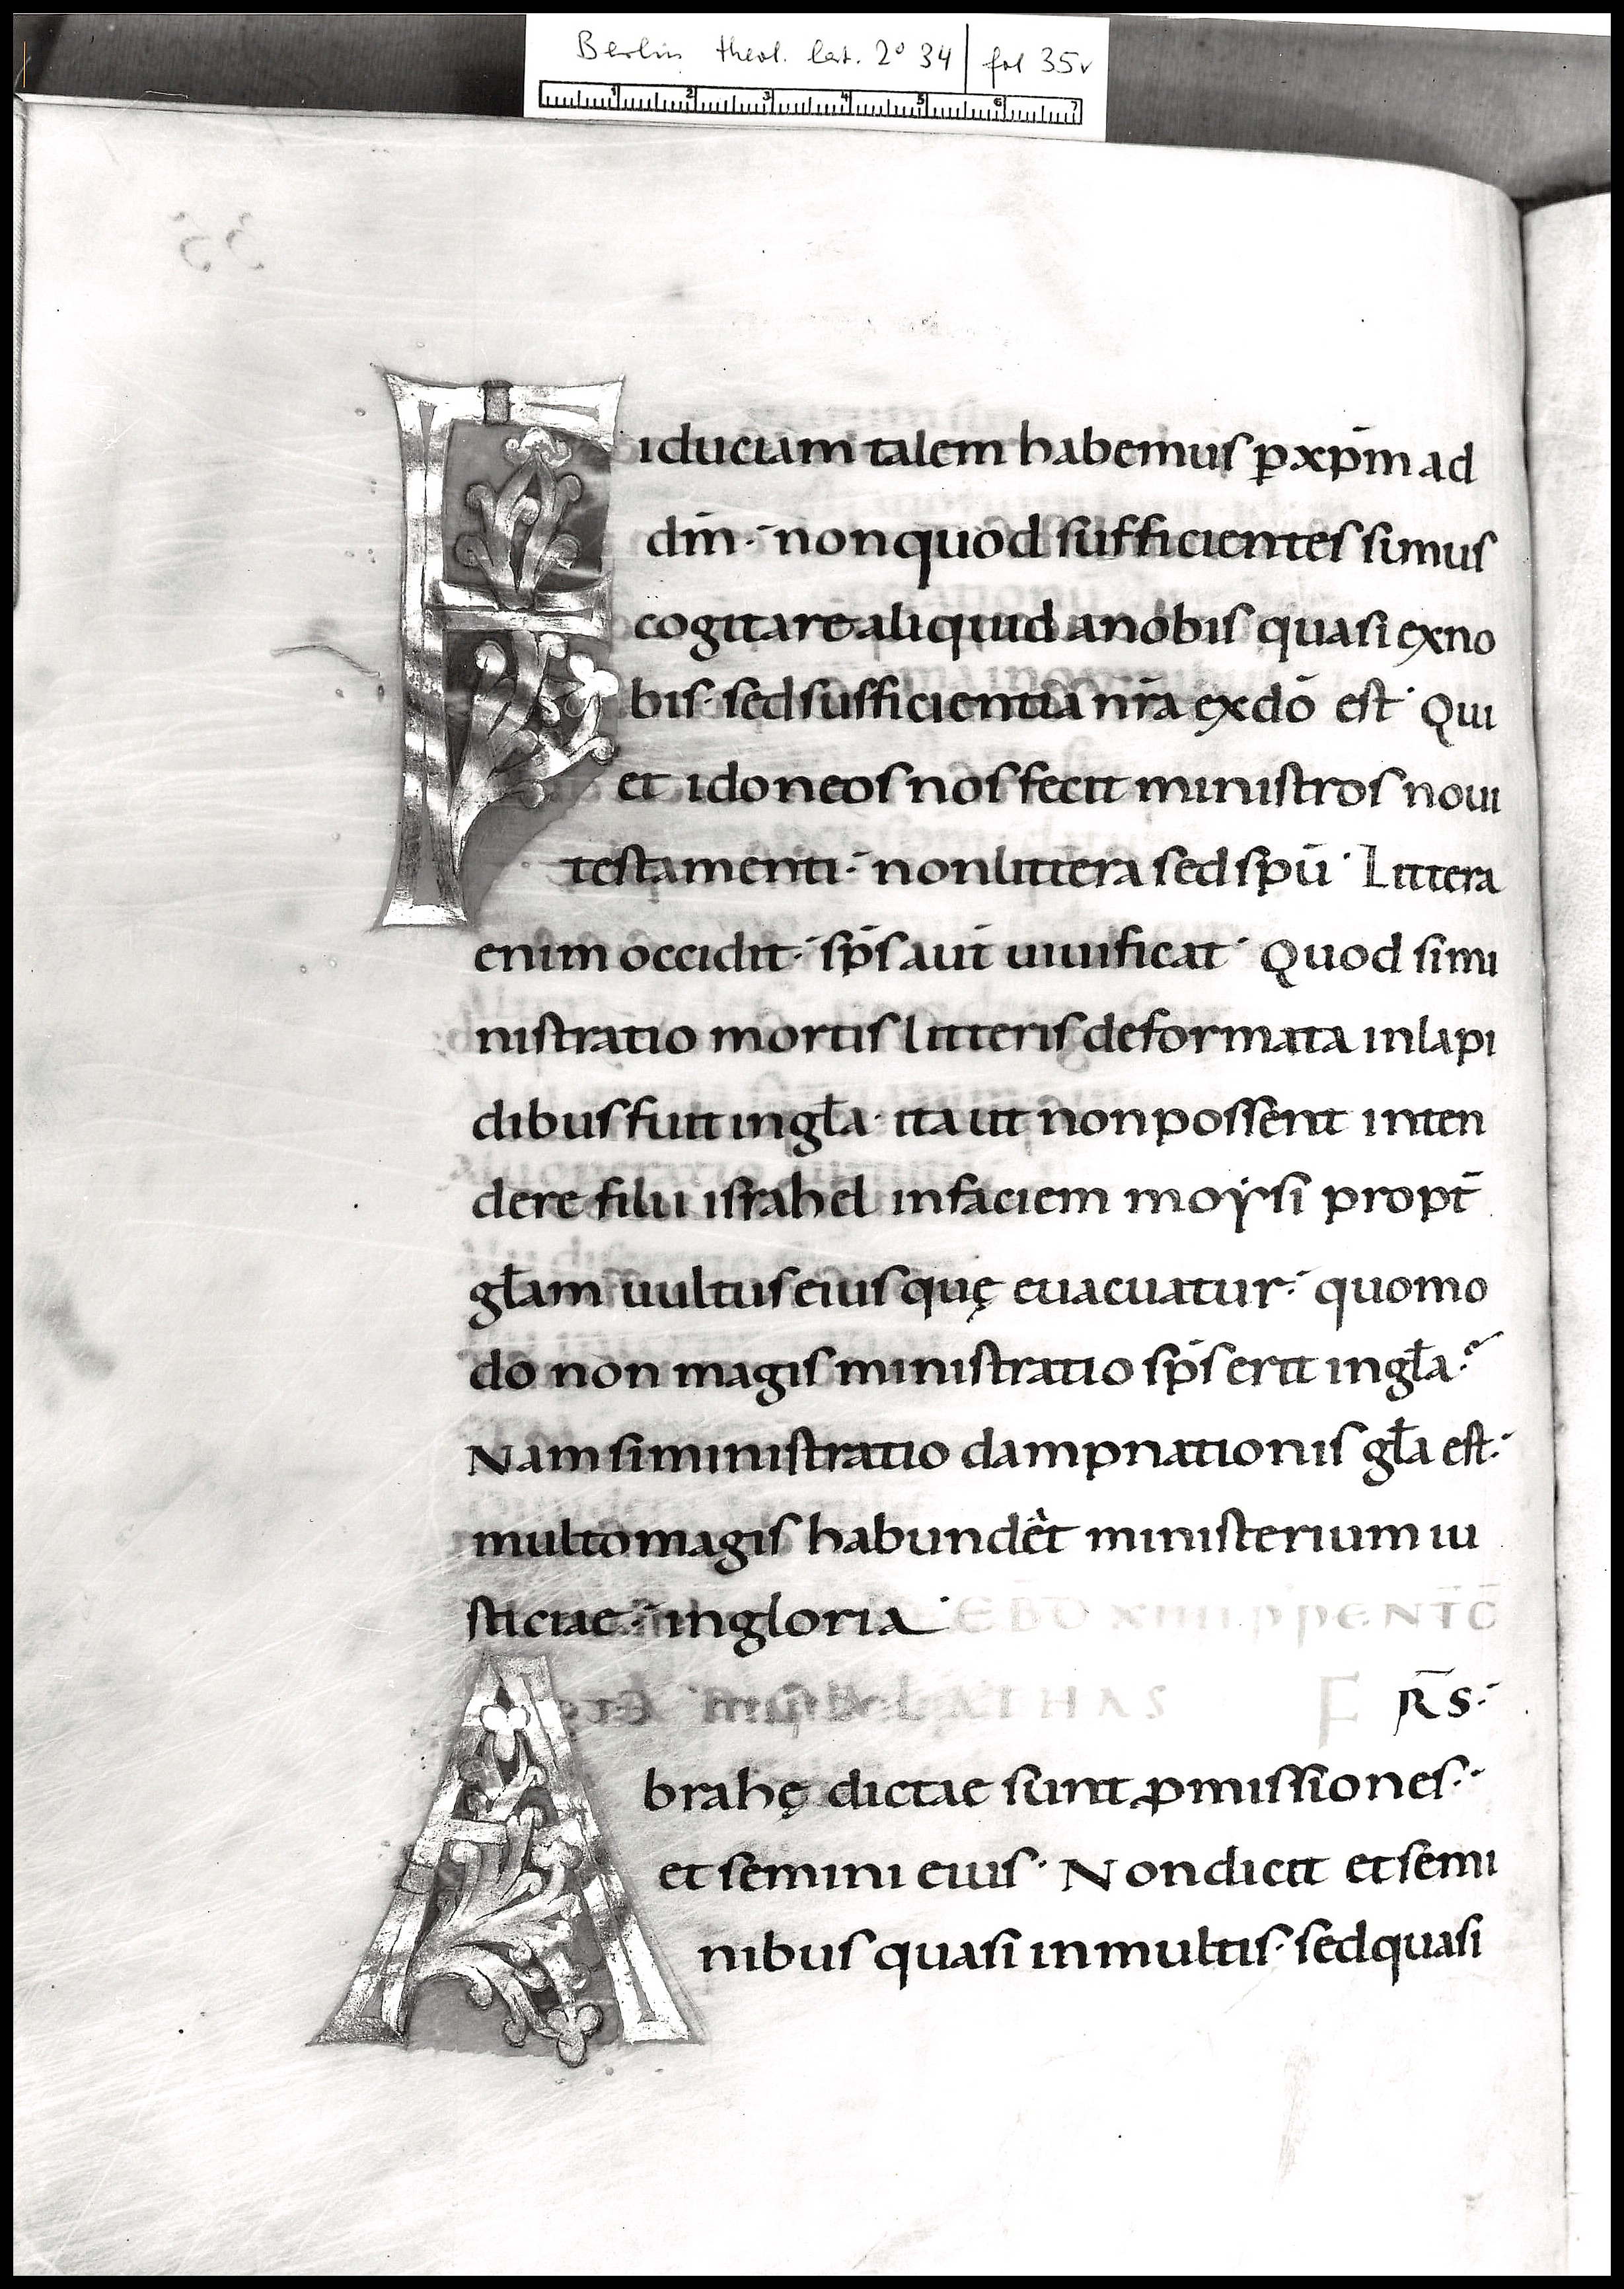 Berlin theol. lat. 2° 34 | fol 35v
1 2 3 4 5 6 7
35
Fiduciam talem habemus p̲ xp̄m ad
dm̄· non quod sufficientes simus
cogitare aliquid a nobis quasi ex no
bis· sed sufficientia nr̄a ex dō est· Qui
et idoneos nos fecit ministros noui
testamenti· non littera sed spū· Littera
enim occidit· sps̄ aut̄ uiuificat· Quod si mi
nistratio mortis litteris deformata in lapi
dibus fuit in gła· ita ut non possent inten
dere filii israhel in faciem moysi propt̄
głam uultus eius quę euacuatur· quomo
do non magis ministratio sps̄ erit in gła?
Nam si ministratio dampnationis gła est·
multo magis habundet ministerium iu
sticiae· in gloria· EBD xiiii p pENT̄C̄
AD GALATHAS F̄R̄S·
Abrahę dictae sunt ꝓmissiones·
et semini eius· Non dicit et semi
nibus quasi in multis· sed quasi